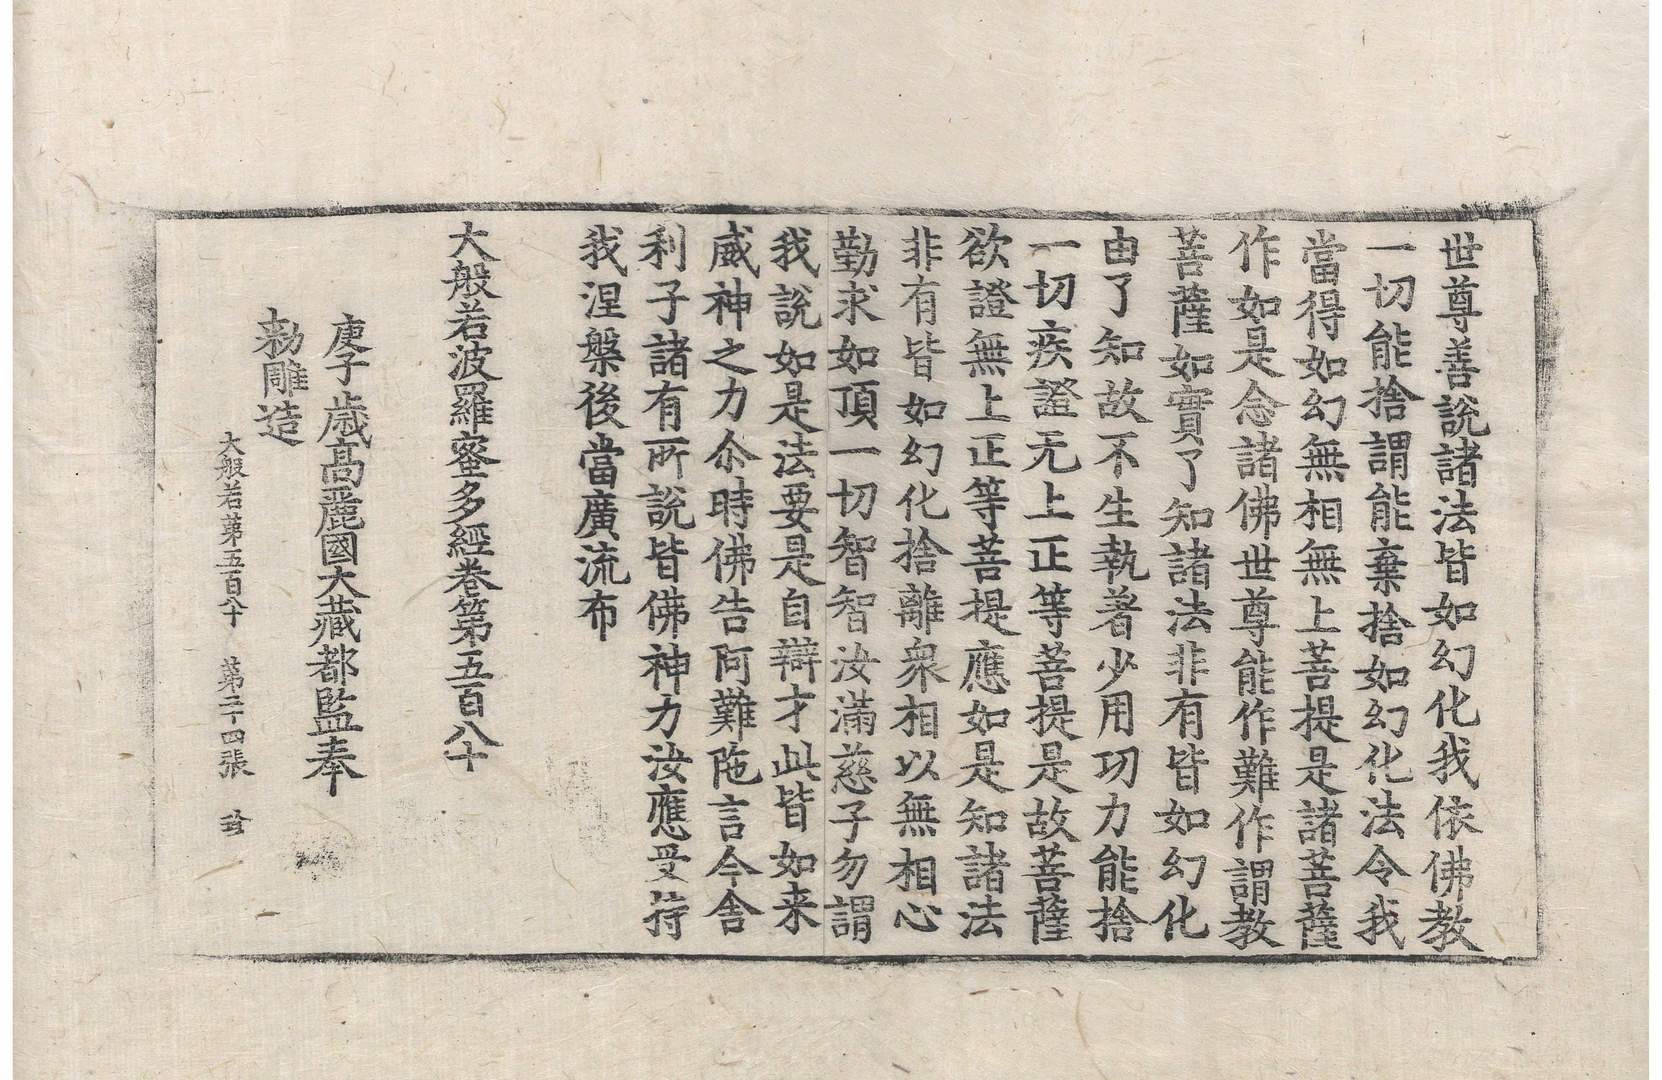 世尊善說諸法皆如幻化我依佛教
一切能捨謂能棄捨如幻化法令我
當得如幻無相無上菩提是諸菩薩
作如是念諸佛世尊能作難作謂教
菩薩如實了知諸法非有皆如幻化
由了知故不生執著少用功力能捨
一切疾證无上正等菩提是故菩薩
欲證無上正等菩提應如是知諸法
非有皆如幻化捨離衆相以無相心
勤求如頂一切智智汝滿慈子勿謂
我說如是法要是自辯才此皆如来
威神之力尒時佛告阿難陁言今舍
利子諸有所說皆佛神力汝應受持
我涅槃後當廣流布
大般若波羅蜜多經卷第五百八十
庚子歲高麗國大藏都監奉
勅雕造
大般若第五百八十 第二十四張 珍